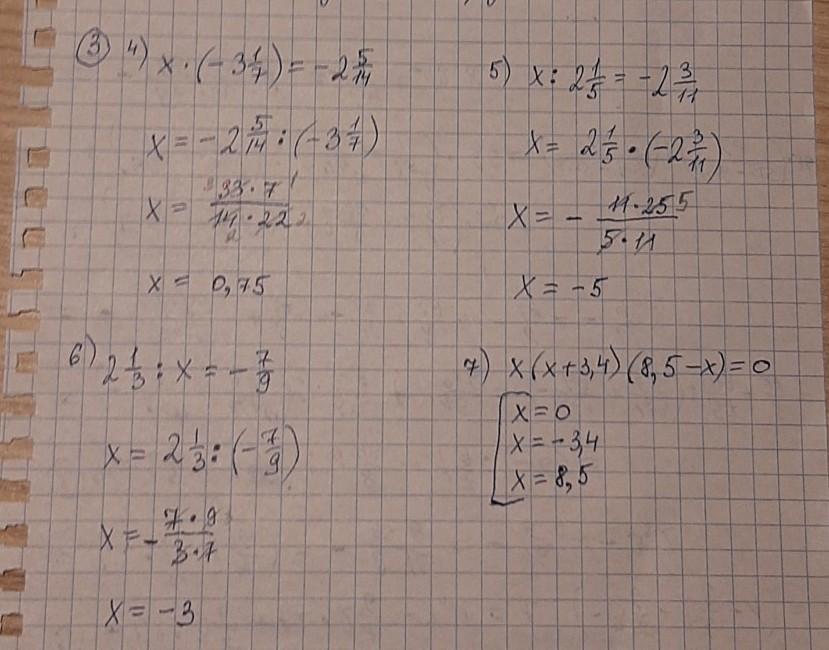 3 4) x · (-3 1/7) = -2 5/14
x = -2 5/14 : (-3 1/7)
x = 33·7 / 14·22
3 1 2 2
x = 0,75
5) x : 2 1/5 = -2 3/11
x = 2 1/5 · (-2 3/11)
x = - 11·25 / 5·11
5
x = -5
6) 2 1/3 : x = - 7/9
x = 2 1/3 : (- 7/9)
x = - 7·9 / 3·7
x = -3
7) x(x+3,4)(8,5-x)=0
[ x=0
x=-3,4
x=8,5